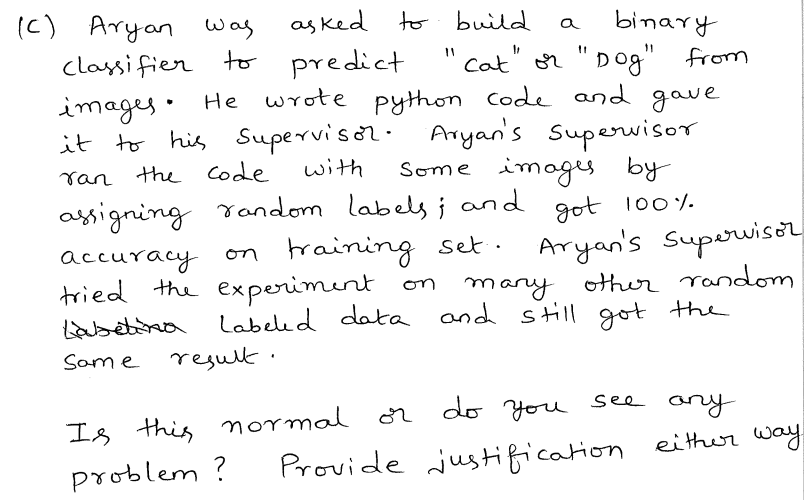 1C) Aryan was asked to build a binary
classifier to predict "cat" or "Dog" from
images. He wrote python code and gave
it to his Supervisor. Aryan's Supervisor
ran the code with some images by
assigning random labels; and got 100%
accuracy on training set. Aryan's Supervisor
tried the experiment on many other random
Labeled data and still got the
same result.
Is this normal or do you see any
problem? Provide justification either way